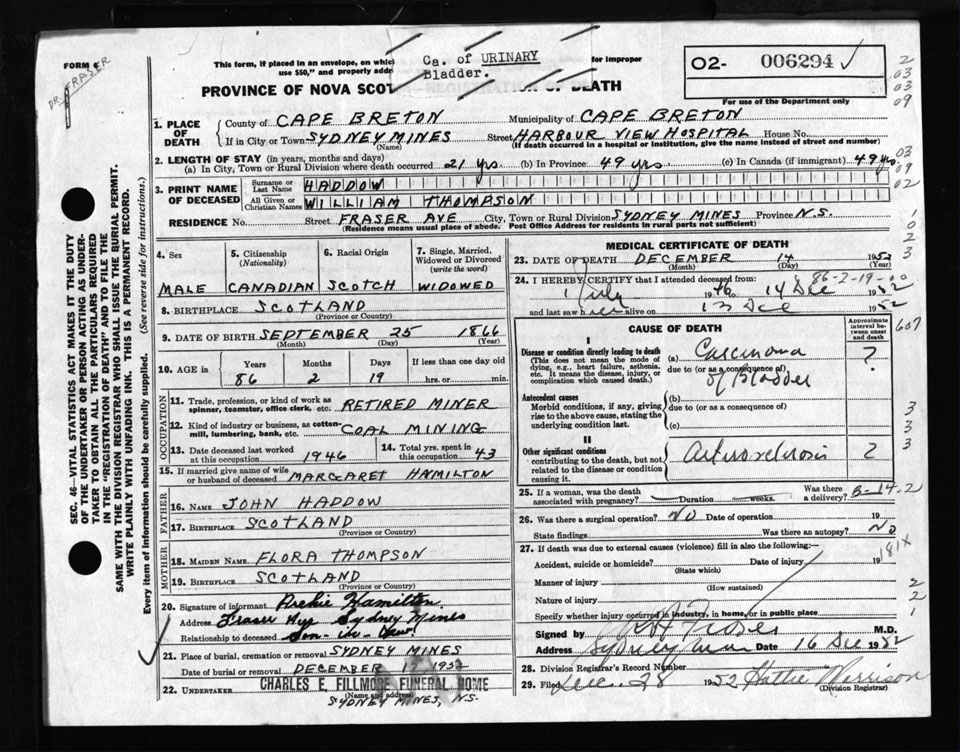 FORM 6
DR. FRASER
This form, if placed in an envelope, on whic
for improper
use $50," and properly addre
Ca. of URINARY
Bladder.
PROVINCE OF NOVA SCOT
OF DEATH
02- 006294
For use of the Department only
1. PLACE OF DEATH
County of CAPE BRETON Municipality of CAPE BRETON
If in City or Town SYDNEY MINES Street HARBOUR VIEW HOSPITAL House No.
(Name) (If death occurred in a hospital or institution, give the name instead of street and number)
2. LENGTH OF STAY (in years, months and days)
(a) In City, Town or Rural Division where death occurred 21 yrs. (b) In Province 49 yrs. (c) In Canada (if immigrant) 49 yrs.
3. PRINT NAME OF DECEASED
Surname or Last Name HADDOW
All Given or Christian Names WILLIAM THOMPSON
RESIDENCE No. Street FRASER AVE City, Town or Rural Division SYDNEY MINES Province N.S.
(Residence means usual place of abode. Post Office Address for residents in rural parts not sufficient)
4. Sex
MALE
5. Citizenship (Nationality)
CANADIAN
6. Racial Origin
SCOTCH
7. Single, Married, Widowed or Divorced (write the word)
WIDOWED
8. BIRTHPLACE SCOTLAND
(Province or Country)
9. DATE OF BIRTH SEPTEMBER 25 1866
(Month) (Day) (Year)
10. AGE in Years Months Days If less than one day old
86 2 19 hrs. or min.
OCCUPATION
11. Trade, profession, or kind of work as spinner, teamster, office clerk, etc. RETIRED MINER
12. Kind of industry or business, as cotton-mill, lumbering, bank, etc. COAL MINING
13. Date deceased last worked at this occupation 1946
14. Total yrs. spent in this occupation 43
15. If married give name of wife or husband of deceased MARGARET HAMILTON
FATHER
16. NAME JOHN HADDOW
17. BIRTHPLACE SCOTLAND
(Province or Country)
MOTHER
18. MAIDEN NAME FLORA THOMPSON
19. BIRTHPLACE SCOTLAND
(Province or Country)
20. Signature of informant Archie Hamilton
Address Fraser Ave Sydney Mines
Relationship to deceased Son-in-law
21. Place of burial, cremation or removal SYDNEY MINES
Date of burial or removal DECEMBER 17 1952
22. UNDERTAKER CHARLES E. FILLMORE FUNERAL HOME
(Name and address)
SYDNEY MINES, N.S.
MEDICAL CERTIFICATE OF DEATH
23. DATE OF DEATH DECEMBER 14 1952
(Month) (Day) (Year)
86-2-19-00
24. I HEREBY CERTIFY that I attended deceased from:
1 July 1946 to 14 Dec 1952
and last saw him alive on 13 Dec 1952
CAUSE OF DEATH
Approximate interval between onset and death
607
I
Disease or condition directly leading to death
(This does not mean the mode of dying, e.g., heart failure, asthenia, etc. It means the disease, injury, or complication which caused death.)
(a) Carcinoma ?
due to (or as a consequence of)
of Bladder
Antecedent causes
Morbid conditions, if any, giving rise to the above cause, stating the underlying condition last.
(b)
due to (or as a consequence of)
(c)
II
Other significant conditions
contributing to the death, but not related to the disease or condition causing it.
Arteriosclerosis ?
25. If a woman, was the death associated with pregnancy? Duration weeks. Was there a delivery? B-14-2
26. Was there a surgical operation? NO Date of operation 19
State findings Was there an autopsy? NO
27. If death was due to external causes (violence) fill in also the following:—
Accident, suicide or homicide? Date of injury 19
(State which)
181X
Manner of injury
(How sustained)
Nature of injury
Specify whether injury occurred in industry, in home, or in public place
Signed by M.D.
Address Sydney Mines Date 16 Dec 1952
28. Division Registrar's Record Number
29. Filed Dec. 28 1952 Hattie Morrison
(Division Registrar)
SEC. 46—VITAL STATISTICS ACT MAKES IT THE DUTY
OF THE UNDERTAKER OR PERSON ACTING AS UNDER-
TAKER TO OBTAIN ALL THE PARTICULARS REQUIRED
IN THE "REGISTRATION OF DEATH" AND TO FILE THE
SAME WITH THE DIVISION REGISTRAR WHO SHALL ISSUE THE BURIAL PERMIT.
WRITE PLAINLY WITH UNFADING INK. THIS IS A PERMANENT RECORD.
Every item of information should be carefully supplied. (See reverse side for instructions.)
2
03
03
09
03
09
02
1
0
2
3
3
3
3
2
2
1